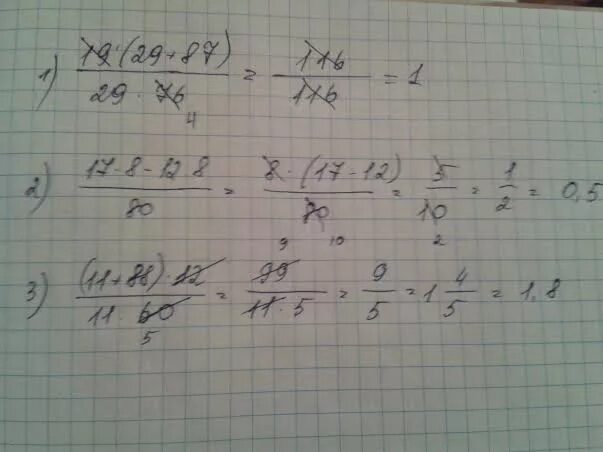 1) 19·(29+87) / 29·76 = 116 / 116 = 1
4
2) 17·8-12 8 / 80 = 8·(17-12) / 80 = 5 / 10 = 1 / 2 = 0,5
9 10 2
3) (11+88)·12 / 11·60 = 99 / 11·5 = 9 / 5 = 1 4 / 5 = 1,8
5